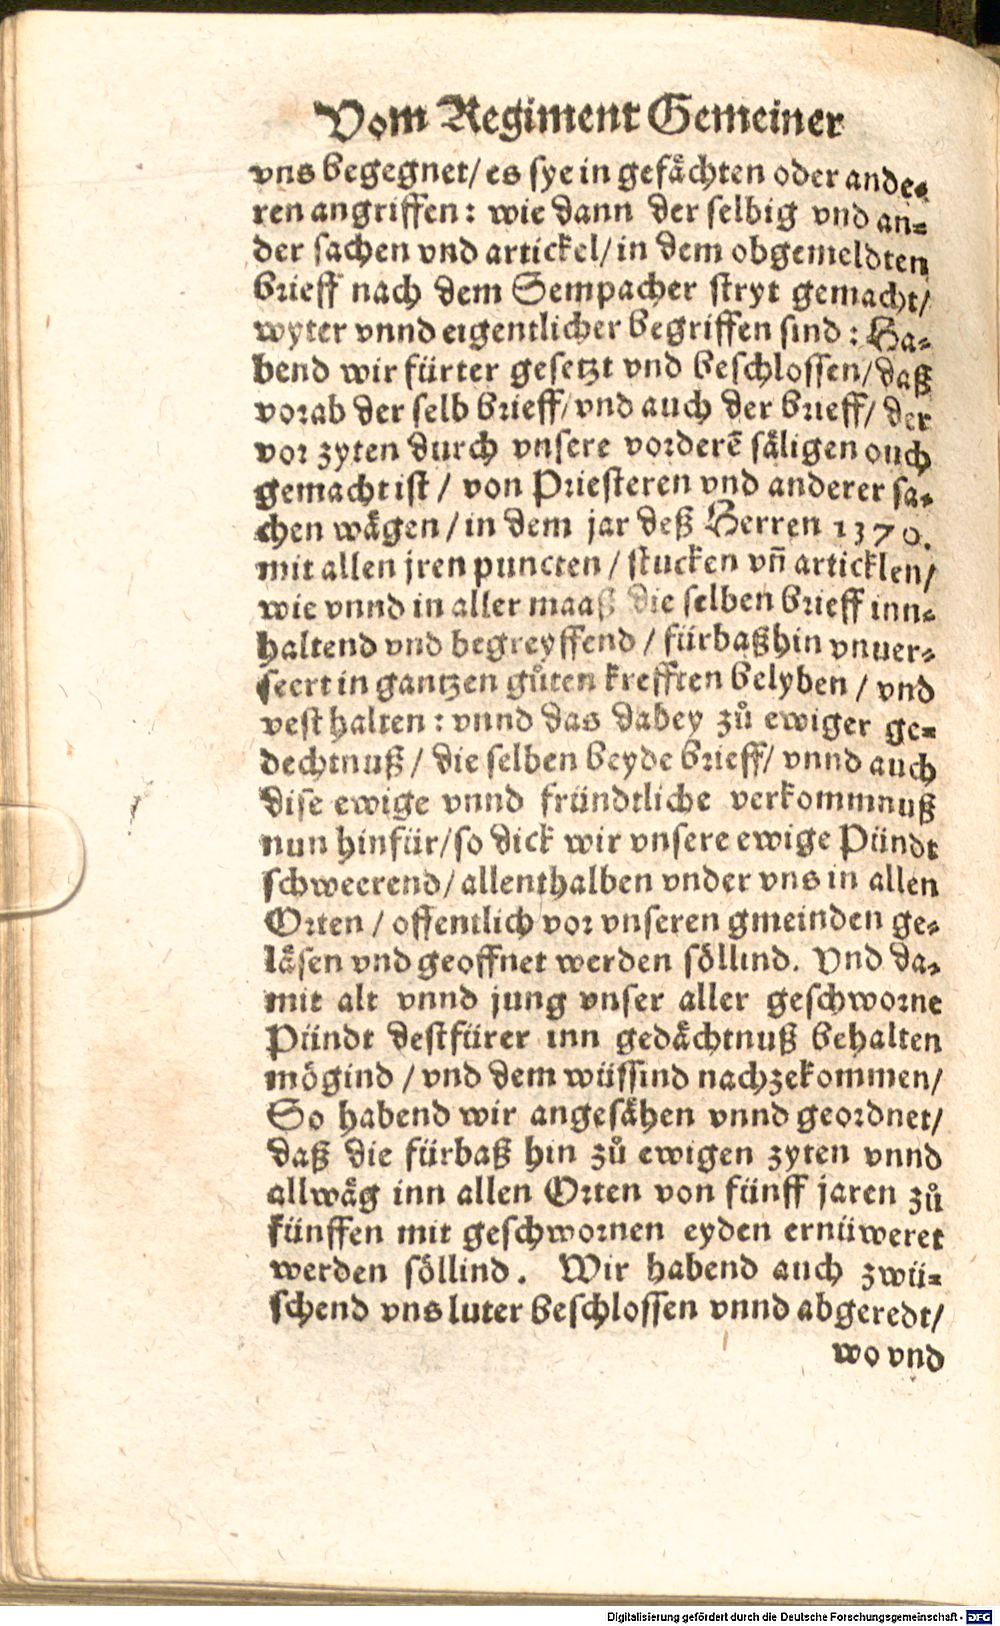 Vom Regiment Gemeiner
vns begegnet/ es sye in gefächten oder ande-
ren angriffen: wie dann der selbig vnd an-
der sachen vnd artickel/ in dem obgemeldten
brieff nach dem Sempacher stryt gemacht/
wyter vnnd eigentlicher begriffen sind: Ha-
bend wir fürter gesetzt vnd beschlossen/ daß
vorab der selb brieff/ vnd auch der brieff/ der
vor zyten durch vnsere vorderē säligen ouch
gemacht ist / von Priesteren vnd anderer sa-
chen wägen / in dem jar deß Herren 1370.
mit allen jren puncten / stucken vn̄ articklen/
wie vnnd in aller maaß die selben brieff inn-
haltend vnd begreyffend / fürbaßhin vnuer-
seert in gantzen gůten krefften belyben / vnd
vest halten: vnnd das dabey zů ewiger ge-
dechtnuß / die selben beyde brieff/ vnnd auch
dise ewige vnnd fründtliche verkommnuß
nun hinfür/ so dick wir vnsere ewige Pündt
schweerend/ allenthalben vnder vns in allen
Orten / offentlich vor vnseren gmeinden ge-
läsen vnd geoffnet werden söllind. Vnd da-
mit alt vnnd jung vnser aller geschworne
Pündt destfürer inn gedächtnuß behalten
mögind / vnd dem wüssind nachzekommen/
So habend wir angesähen vnnd geordnet/
daß die fürbaß hin zů ewigen zyten vnnd
allwäg inn allen Orten von fünff jaren zů
künffen mit geschwornen eyden ernüweret
werden söllind. Wir habend auch zwü-
schend vns luter beschlossen vnnd abgeredt/
wo vnd
Digitalisierung gefördert durch die Deutsche Forschungsgemeinschaft - DFG